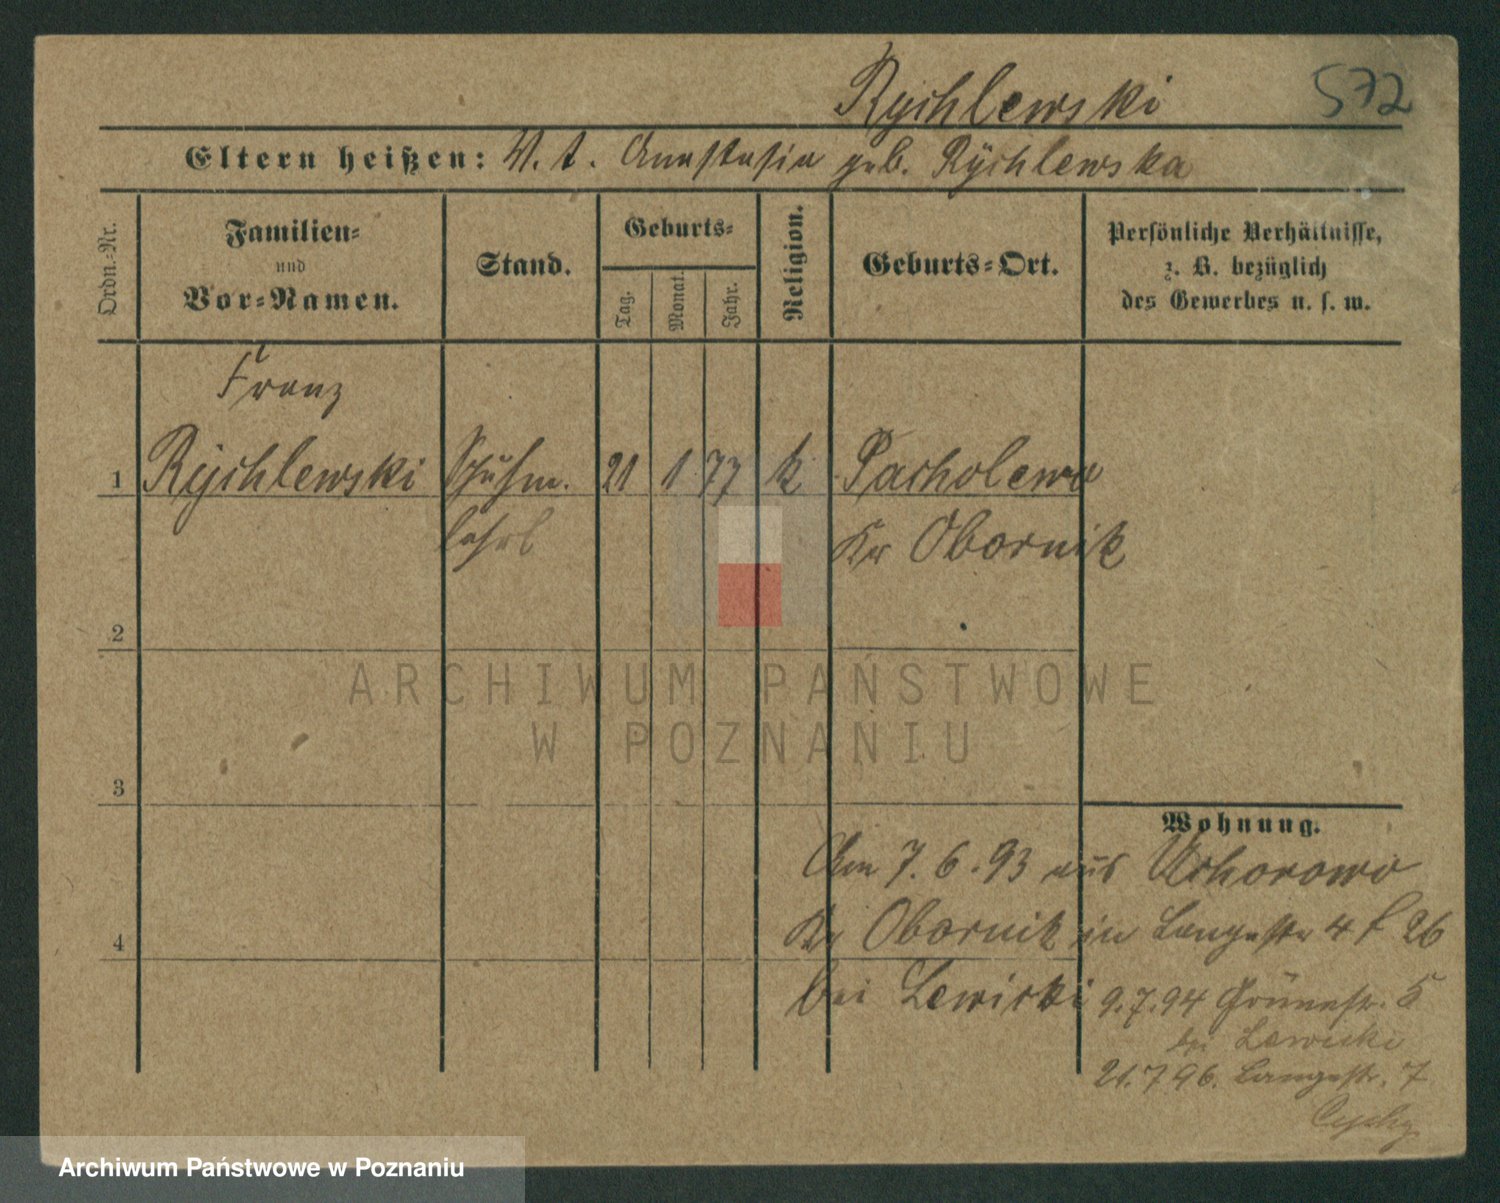 Rychlewski
572
Eltern heißen: V. t. Anastasia geb. Rÿchlewska
Ordn.-Nr.
Familien-
und
Vor-Namen.
Stand.
Geburts-
Tag.
Monat.
Jahr.
Religion.
Geburts-Ort.
Persönliche Verhältnisse,
z. B. bezüglich
des Gewerbes u. s. w.
Franz
1 Rÿchlewski Schuhm. 21 1 77 k Pacholewo
lehrl Kr Obornik
2
3
Wohnung.
Am 7. 6. 93 aus Uchorowo
4 Kr Obornik in Langestr 4 f 26
bei Lewicki 9.7.94 Grünestr. 5
bei Lewicki
21.7.96. Langestr. 7
ARCHIWUM PAŃSTWOWE
W POZNANIU
Archiwum Państwowe w Poznaniu